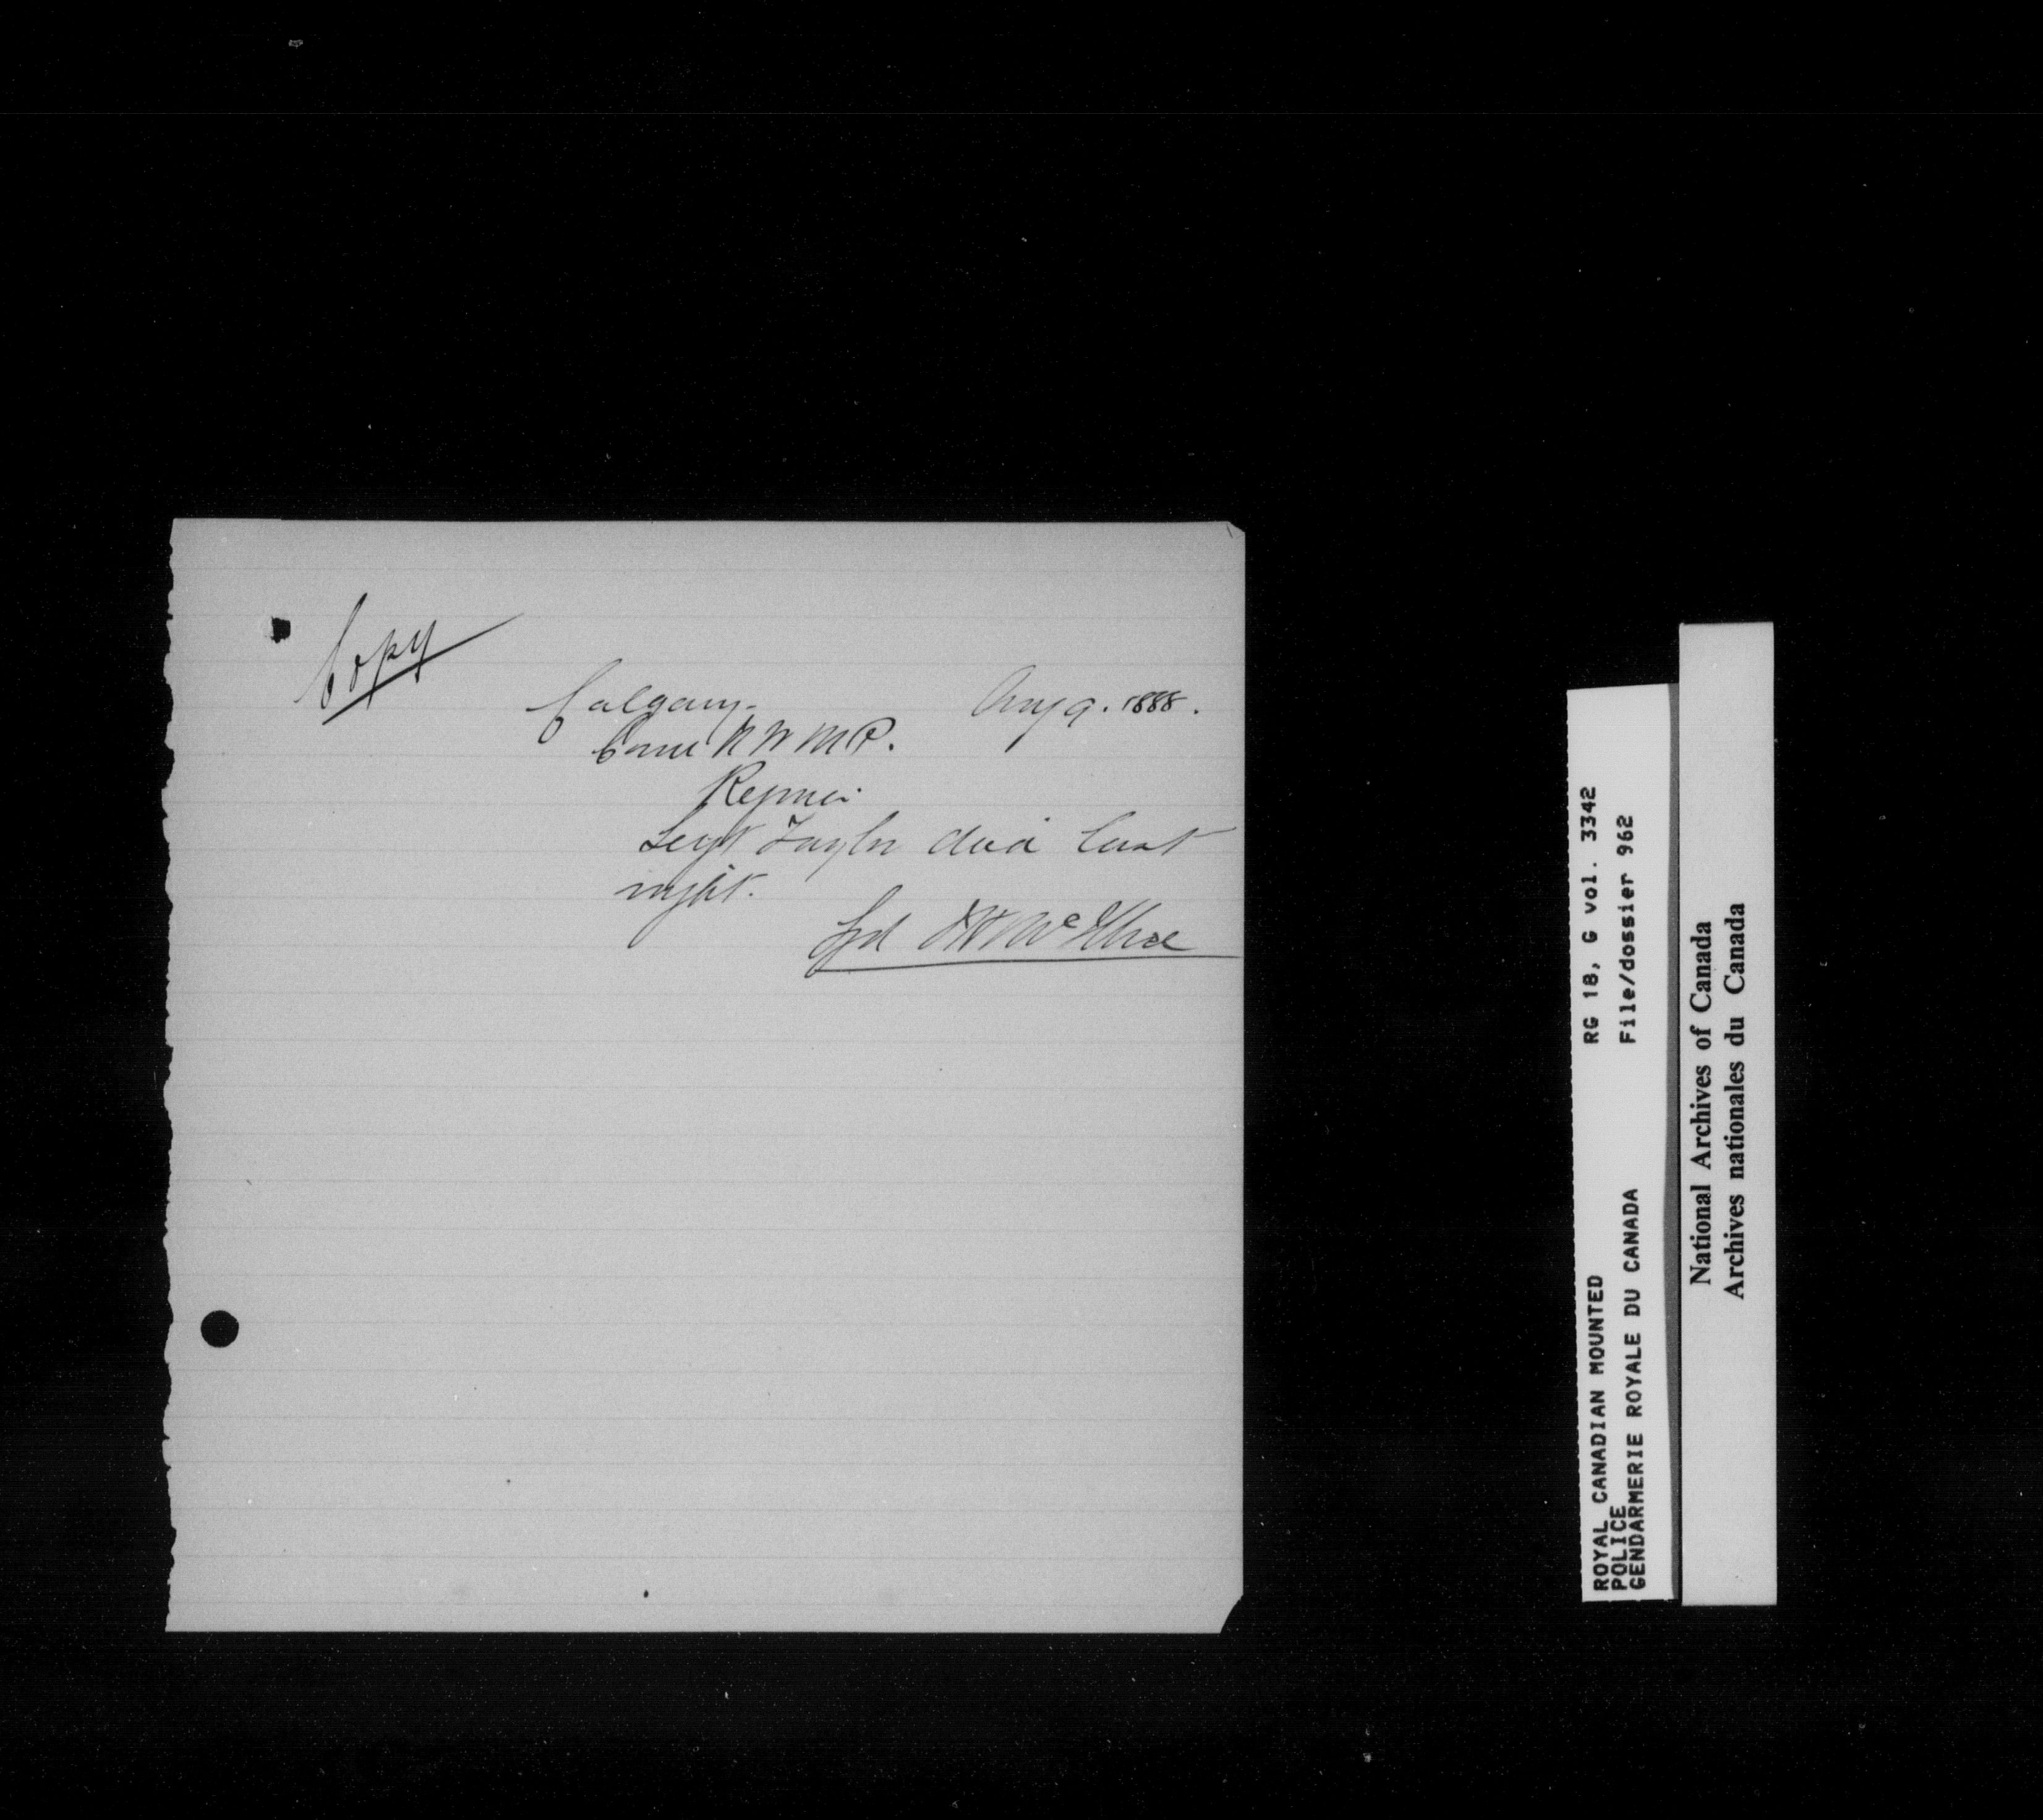 Copy
Calgary. Aug 9. 1888.
Comr N W M P.
Regina.
Sergt Taylor died last
night.
Sgd
RG 18, G vol. 3342
File/dossier 962
ROYAL CANADIAN MOUNTED
POLICE
GENDARMERIE ROYALE DU CANADA
National Archives of Canada
Archives nationales du Canada